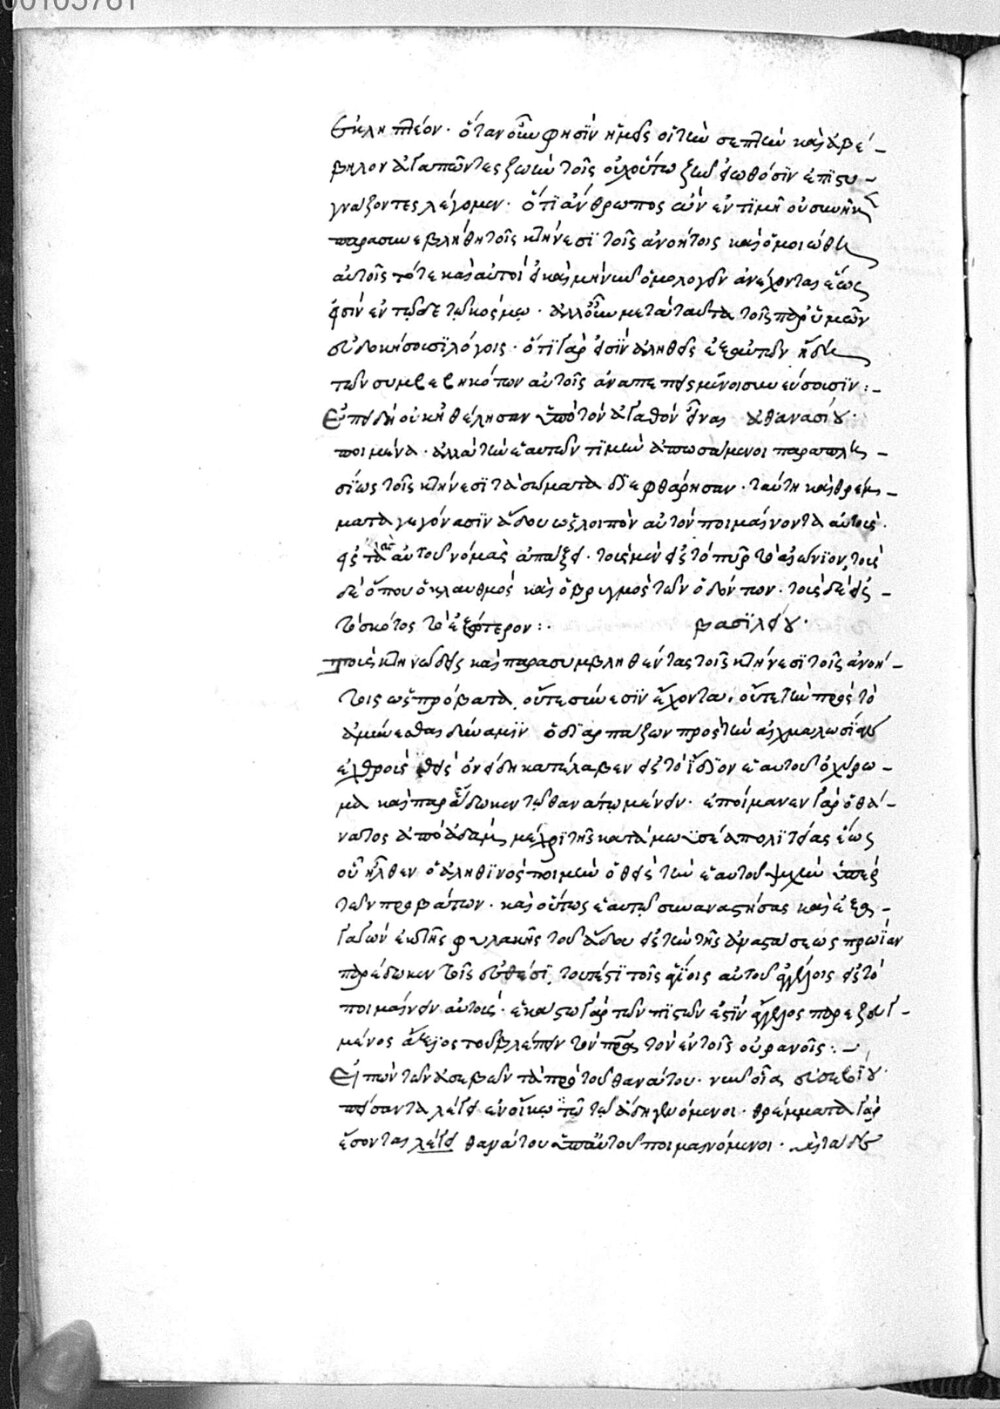 00105761
ἔτι πλέον · ὅταν οὖν φησὶν ἡμεῖς οἱ τὴν σεπτὴν καὶ ἀβέ-
βηλον ἀγαπῶντες ζωὴν τοῖς οὐχ οὕτω ζῆν ἐπισυ-
γνάζοντες λέγομεν · ὅτι ἄνθρωπος ὢν ἐν τιμῇ οὐ συνῆκε
παρασυνεβλήθη τοῖς κτήνεσι τοῖς ἀνοήτοις καὶ ὁμοιώθη
αὐτοῖς τότε καὶ αὐτοὶ ὁμολογεῖν ἀνέχονται ἕως
εἰσὶν ἐν τῷδε τῷ κόσμῳ · ἀλλ' οὖν μετὰ ταῦτα τοῖς παρ' ὑμῶν
εὐδοκήσουσι λόγοις · ὅτι γάρ εἰσιν ἀληθεῖς ἐξ αὐτῶν ἤδη
τῶν συμβεβηκότων αὐτοῖς ἀναπεπεισμένοι συνεύσουσιν :-
Ἐπειδὴ οὐκ ἠθέλησαν ὑπὸ τὸν ἀγαθὸν εἶναι ἀθανασίου ·
ποιμένα · ἀλλὰ τὴν ἑαυτῶν τιμὴν ἀπωσάμενοι παραπλη-
σίως τοῖς κτήνεσι τὰ σώματα διεφθάρησαν · ταύτῃ καὶ θρέμ-
ματα γεγόνασιν ᾅδου ὡς λοιπὸν αὐτὸν ποιμαίνοντα αὐτοὺς ·
εἰς τὰς αὐτοῦ νομὰς ἀπάξει · τοὺς μὲν εἰς τὸ πῦρ τὸ αἰώνιον, τοὺς
δὲ ὅπου ὁ κλαυθμὸς καὶ ὁ βρυγμὸς τῶν ὀδόντων · τοὺς δὲ εἰς
τὸ σκότος τὸ ἐξώτερον : · βασιλείου ·
τοὺς κτηνώδεις καὶ παρασυμβληθέντας τοῖς κτήνεσι τοῖς ἀνοή-
τοις ὡς πρόβατα, οὔτε σύνεσιν ἔχοντα, οὔτε τὴν πρὸς τὸ
ἀμύνεσθαι δύναμιν ὁ διαρπάζων πρὸς τὴν αἰχμαλωσίαν
ἐχθρὸς εἰς ὃν ἤδη κατέλαβεν εἰς τὸ ἴδιον ἑαυτοῦ ὀχύρω-
μα καὶ παραδέδωκεν τῷ θανάτῳ ποιμαίνειν · ἐποίμανεν γὰρ ὁ θά-
νατος ἀπὸ ἀδὰμ μέχρι τῆς κατὰ μωϋσέα πολιτείας ἕως
οὗ ἦλθεν ὁ ἀληθινὸς ποιμὴν ὁ θεὶς τὴν ἑαυτοῦ ψυχὴν ὑπὲρ
τῶν προβάτων · καὶ οὕτως ἑαυτῷ συναναστήσας καὶ ἐξα-
γαγὼν ἐκ τῆς φυλακῆς τοῦ ᾅδου εἰς τὴν τῆς ἀναστάσεως πρωΐαν
παρέδωκεν τοῖς εὐθέσι, τουτέστι τοῖς ἁγίοις αὐτοῦ ἀγγέλοις εἰς τὸ
ποιμαίνειν αὐτούς · ἑκάστῳ γὰρ τῶν πιστῶν ἐστὶν ἄγγελος παρεζευγ-
μένος ἄξιος τοῦ βλέπειν τὸν πρα τὸν ἐν τοῖς οὐρανοῖς : -
Εἰπὼν τῶν ἀσεβῶν τὰ πρὸ τοῦ θανάτου · νῦν οἷα εὐσεβίου ·
πείσονται λέγει ἐν οἴκῳ τῷ τῷ ᾅδη γενόμενοι · θρέμματα γὰρ
ἔσονται λέγει θανάτου ὑπ' αὐτοῦ ποιμαινόμενοι ·